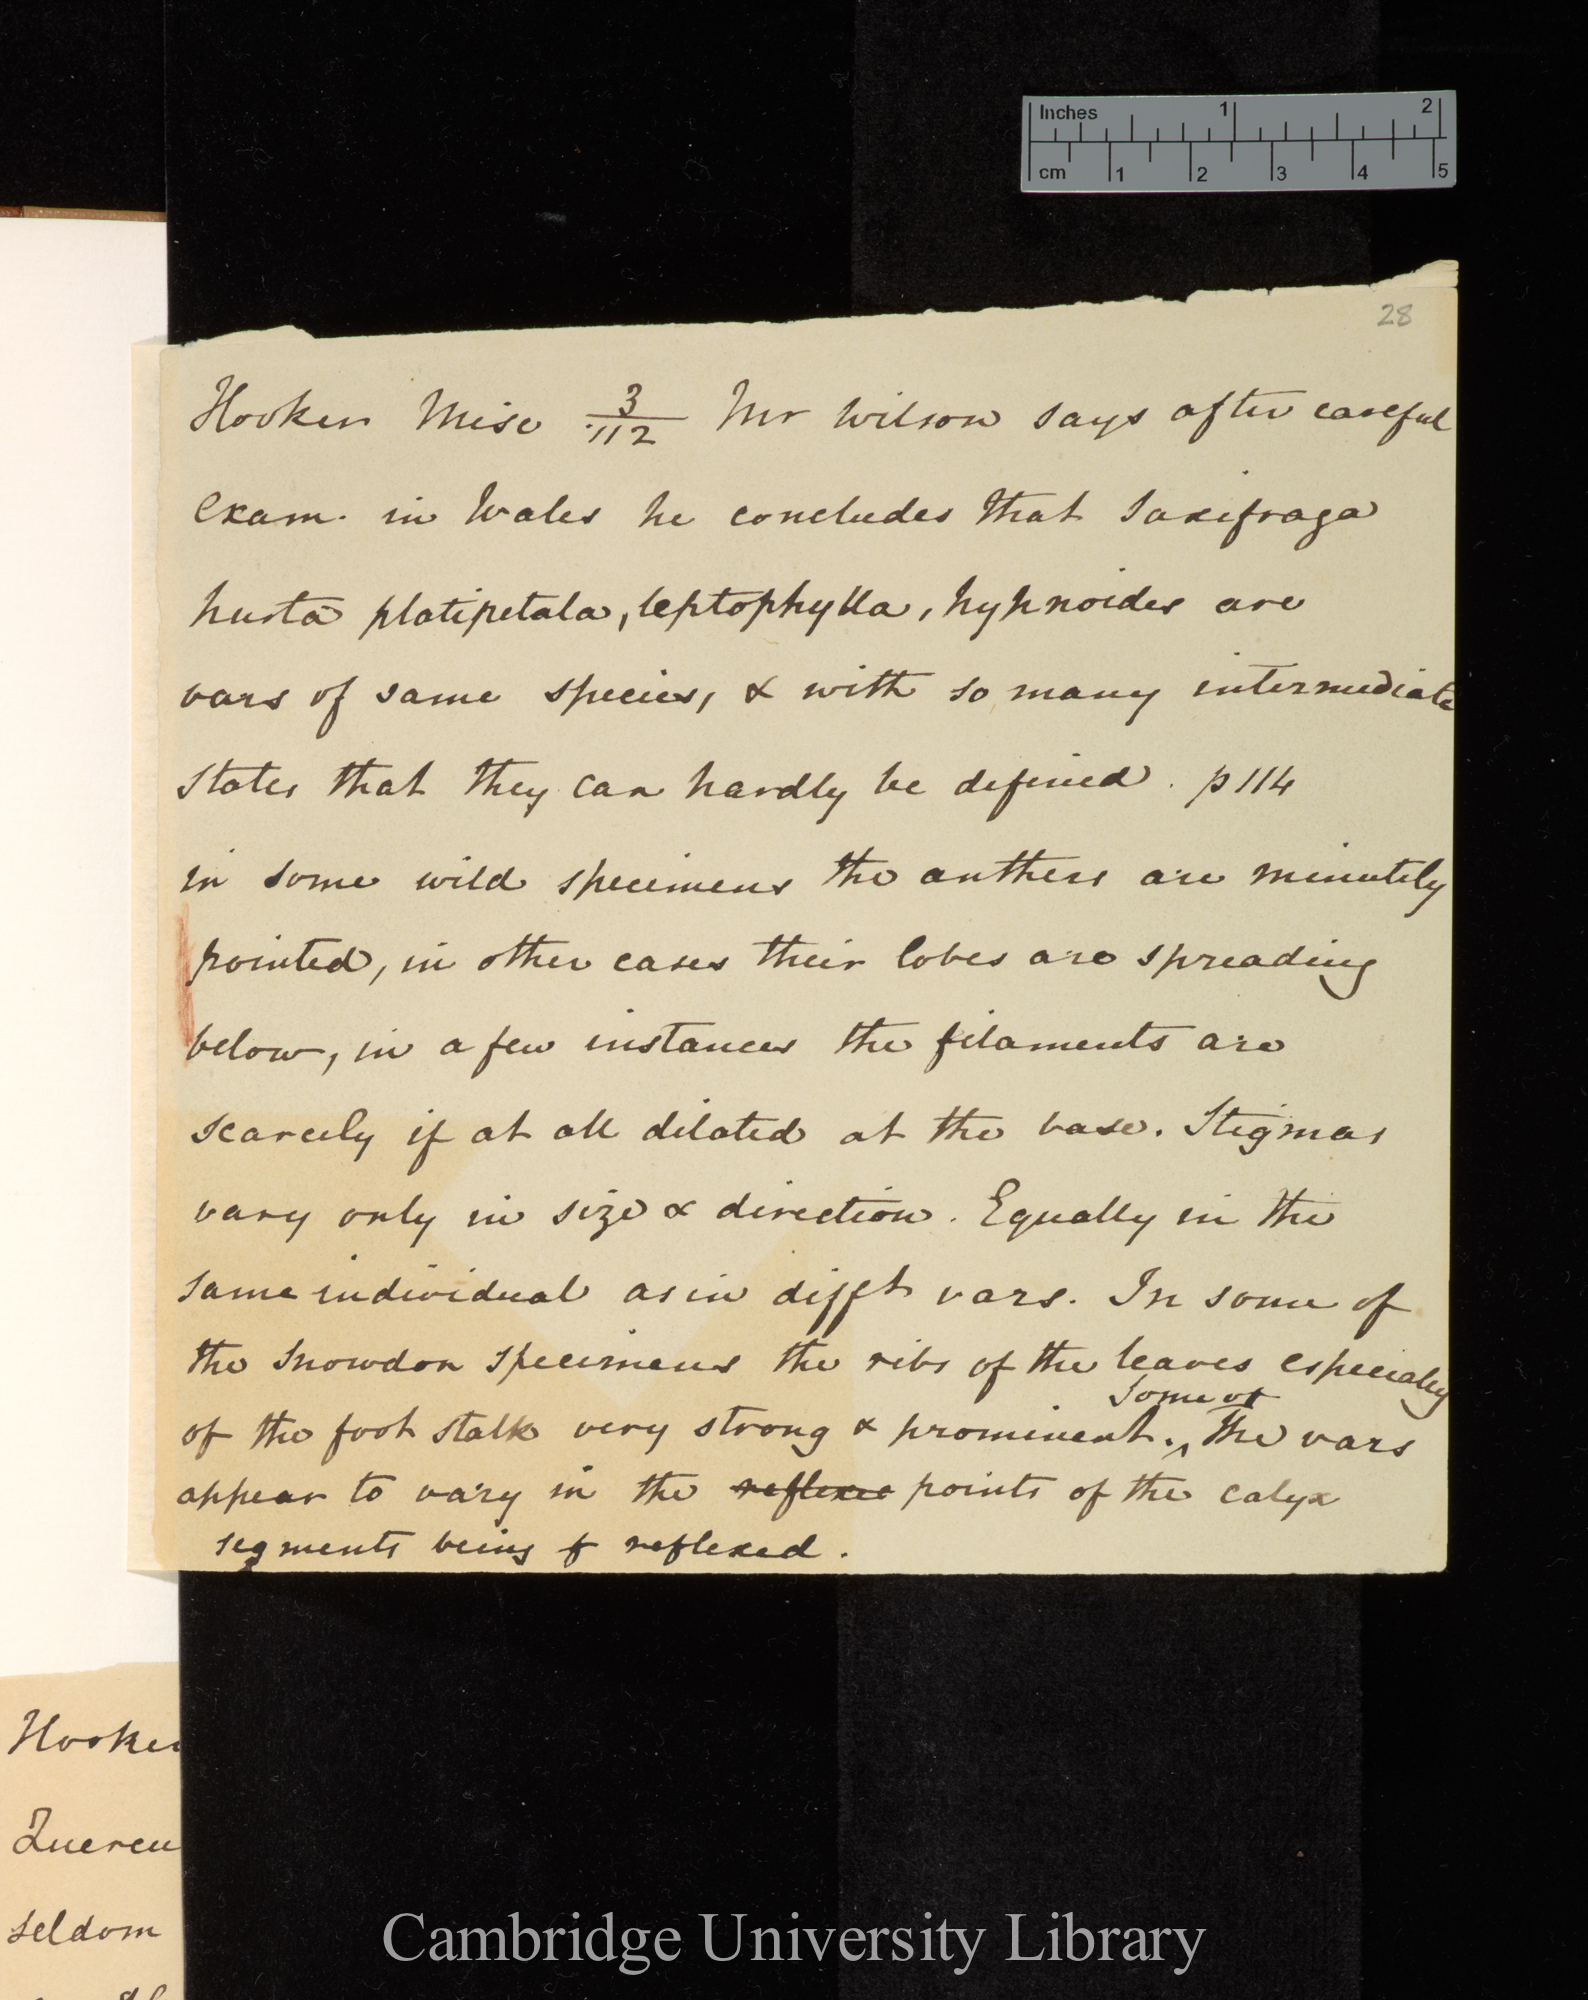 Inches 1 2
cm 1 2 3 4 5
28
Hooker Misc 3/112 Mr Wilson says after careful
exam. in Wales he concludes that Saxifraga
hirta platipetala, leptophylla, hyhnoides are
vars of same species, & with so many intermediate
states that they can hardly be defined. p 114
in some wild specimens the anthers are minutely
pointed, in other cases their lobes are spreading
below, in a few instances the filaments are
scarcely if at all dilated at the base. Stigmas
vary only in size & direction. Equally in the
same individual as in difft vars. In some of
the Snowdon specimens the ribs of the leaves especially
some of
of the foot stalk very strong & prominent. ^ The vars
appear to vary in the reflexe points of the calyx
segments being reflexed.
Hooker
Quercu
seldom
Cambridge University Library